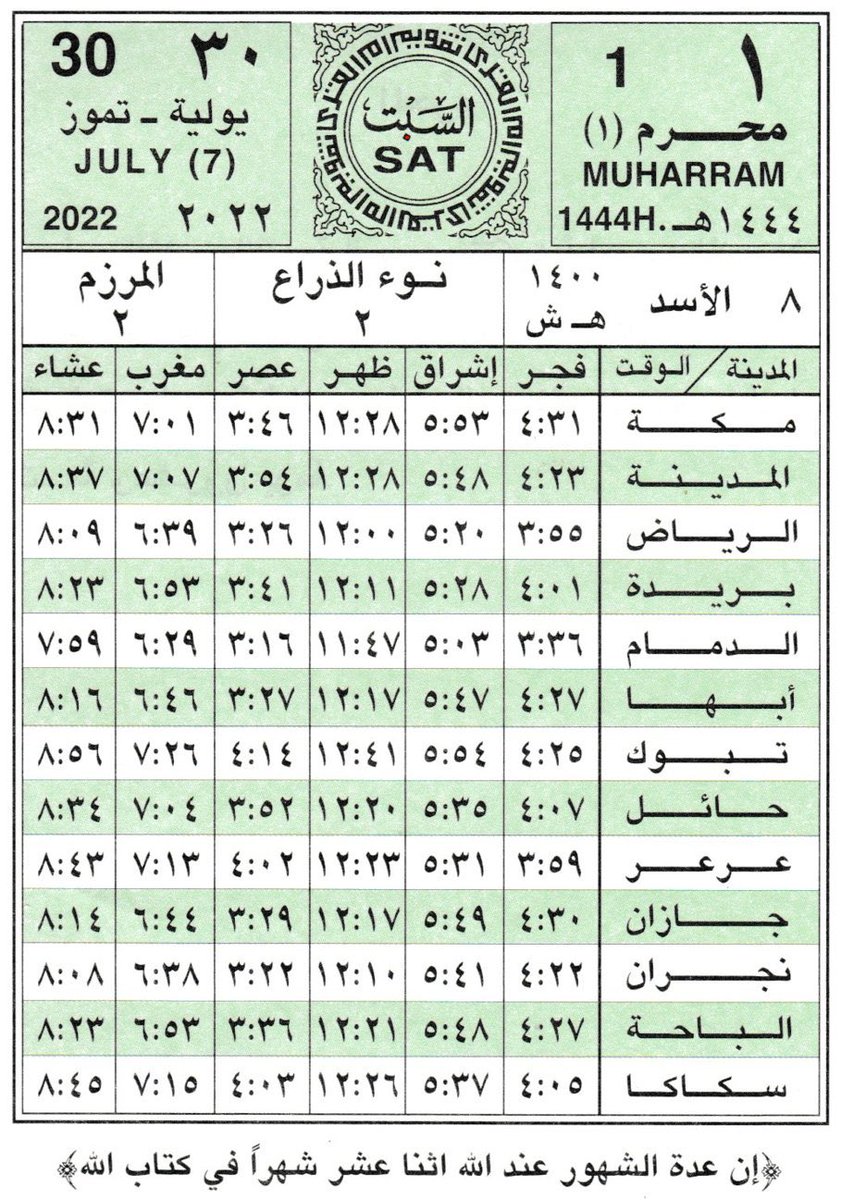 ١ 1
محرم (١)
MUHARRAM
1444H. ١٤٤٤هـ
السَّبْت
SAT
30 ٣٠
يولية - تموز
JULY (7)
2022 ٢٠٢٢
٨ الأسد ١٤٠٠ هـ ش
نوء الذراع
٢
المرزم
٢
المدينة / الوقت فجر إشراق ظهر عصر مغرب عشاء
مكة ٤:٣١ ٥:٥٣ ١٢:٢٨ ٣:٤٦ ٧:٠١ ٨:٣١
المدينة ٤:٢٣ ٥:٤٨ ١٢:٢٨ ٣:٥٤ ٧:٠٧ ٨:٣٧
الرياض ٣:٥٥ ٥:٢٠ ١٢:٠٠ ٣:٢٦ ٦:٣٩ ٨:٠٩
بريدة ٤:٠١ ٥:٢٨ ١٢:١١ ٣:٤١ ٦:٥٣ ٨:٢٣
الدمام ٣:٣٦ ٥:٠٣ ١١:٤٧ ٣:١٦ ٦:٢٩ ٧:٥٩
أبها ٤:٢٧ ٥:٤٧ ١٢:١٧ ٣:٢٧ ٦:٤٦ ٨:١٦
تبوك ٤:٢٥ ٥:٥٤ ١٢:٤١ ٤:١٤ ٧:٢٦ ٨:٥٦
حائل ٤:٠٧ ٥:٣٥ ١٢:٢٠ ٣:٥٢ ٧:٠٤ ٨:٣٤
عرعر ٣:٥٩ ٥:٣١ ١٢:٢٣ ٤:٠٢ ٧:١٣ ٨:٤٣
جازان ٤:٣٠ ٥:٤٩ ١٢:١٧ ٣:٢٩ ٦:٤٤ ٨:١٤
نجران ٤:٢٢ ٥:٤١ ١٢:١٠ ٣:٢٢ ٦:٣٨ ٨:٠٨
الباحة ٤:٢٧ ٥:٤٨ ١٢:٢١ ٣:٣٦ ٦:٥٣ ٨:٢٣
سكاكا ٤:٠٥ ٥:٣٧ ١٢:٢٦ ٤:٠٣ ٧:١٥ ٨:٤٥
﴿إن عدة الشهور عند الله اثنا عشر شهراً في كتاب الله﴾